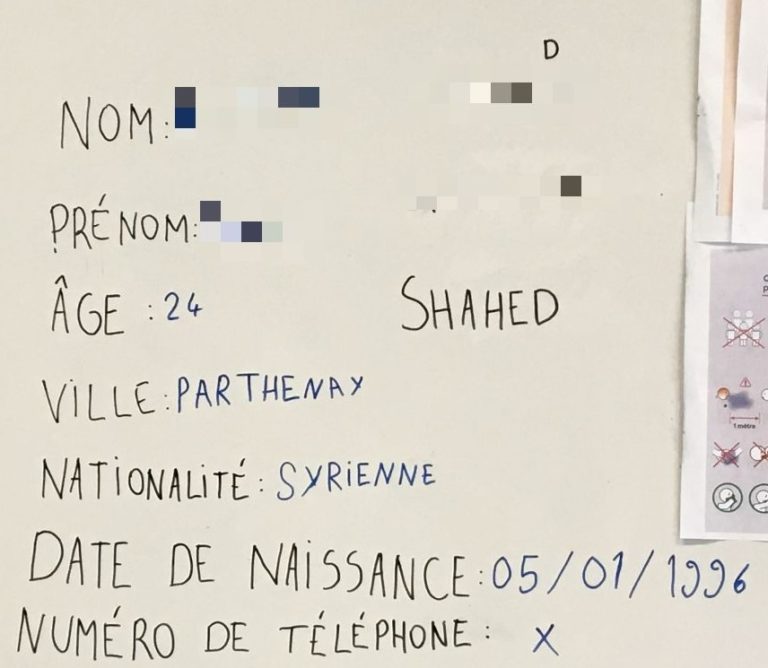 D
NOM:
PRÉNOM:
ÂGE : 24
SHAHED
VILLE: PARTHENAY
NATIONALITÉ: SYRIENNE
DATE DE NAISSANCE: 05/01/1996
NUMÉRO DE TÉLÉPHONE: X
1 mètre